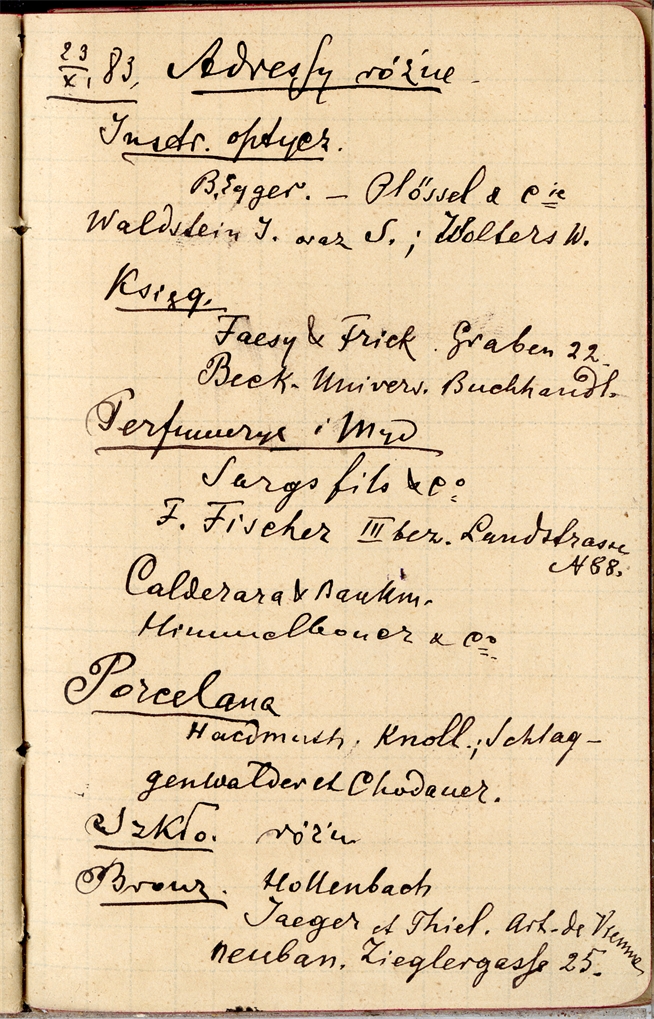 23/XI 83, Adressy różne -
Instr. optycz.
Plössel & Cie
Waldstein J. oraz S. ; Wolters W.
Księg.
Faesy & Frick. Graben 22.
Beck. Univers. Buchhandl.
Perfumerye i Myd
Sargs fils & Co
F. Fischer III bez. Landstrasse
N 88.
Calderara & Bankm.
Himmelbauer & Co
Porcelana
Hardmuth, Knoll.; Schlag-
genwalder et Chodauer.
Szkło. różn
Bronz. Hollenbach
Jaeger et Thiel. Art. de Vienne
neuban. Zieglergasse 25.